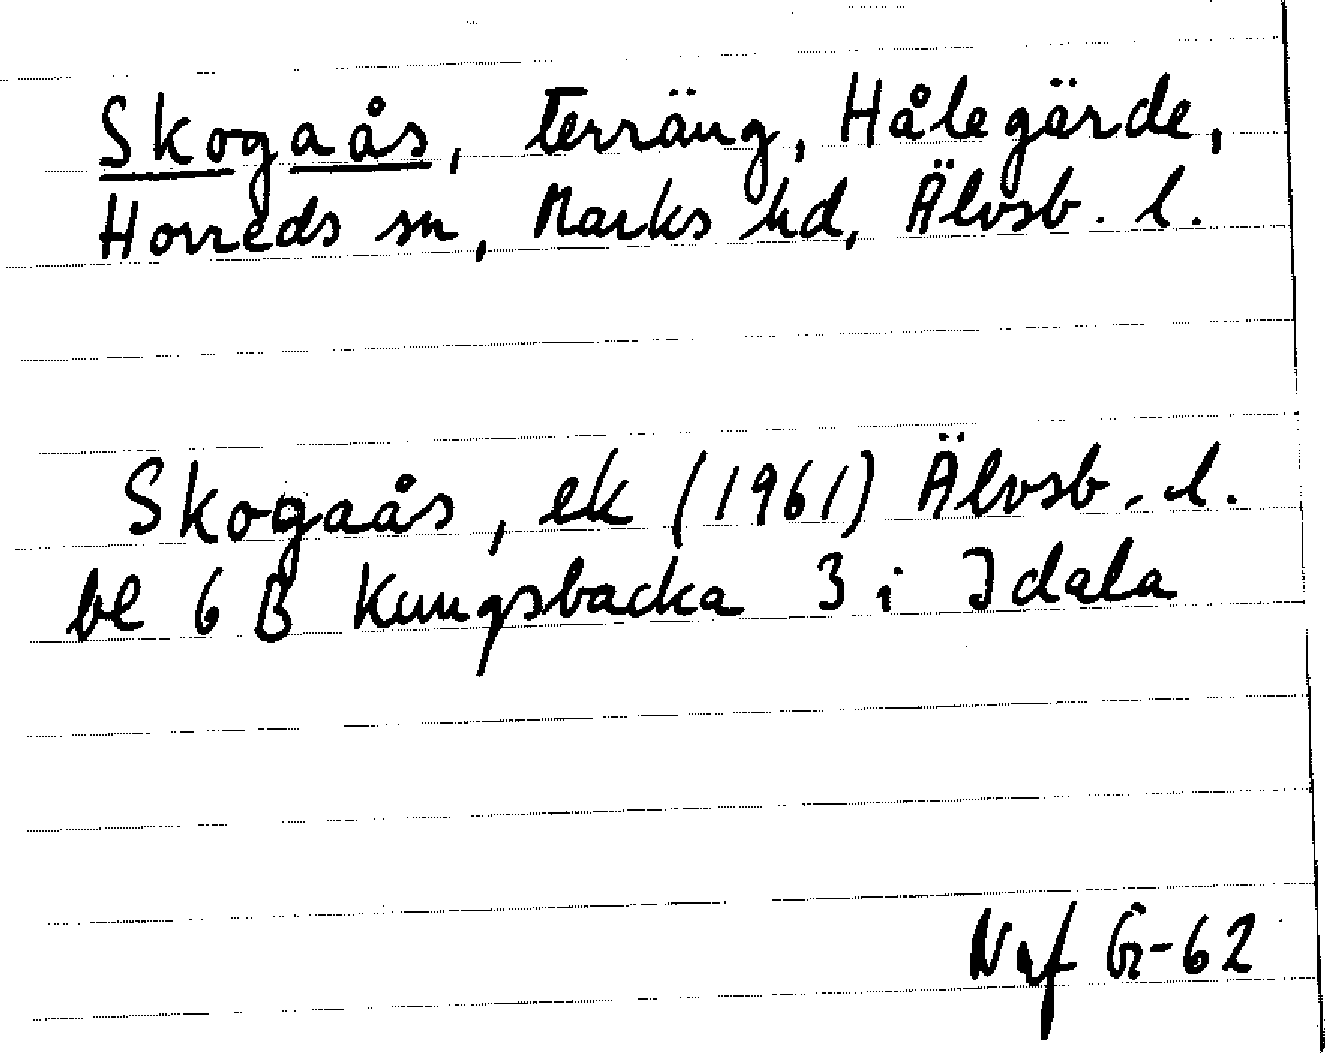 Skogaås, terräng, Hålegärde,
Horreds sn, Marks hd, Älvsb. l.
Skogaås, ek (1961) Älvsb. l.
bl 6 B Kungsbacka 3 i Idala
-62